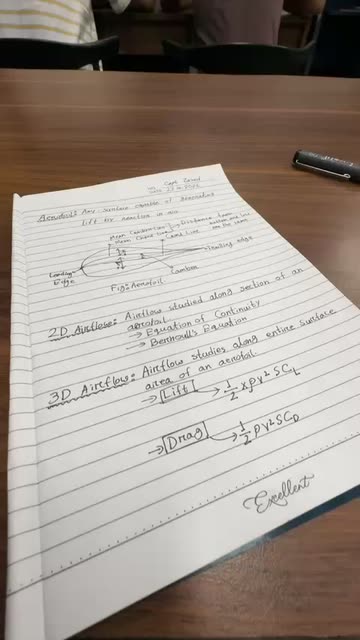 Capt.
Aerofoil: Any surface capable of generating
lift for reaction in air
Mean Camber line
Mean Chord Line
Chord Line
Distance from
are
the same
Trailing edge
Leading
Edge
Camber
Fig: Aerofoil
2D Airflow: Airflow studied along section of an
aerofoil.
→ Equation of Continuity
→ Bernoulli's Equation
3D Airflow: Airflow studies along entire surface
area of an aerofoil.
→ Lift → 1/2 × ρV² S CL
→ Drag → 1/2 ρV² S CD
Excellent